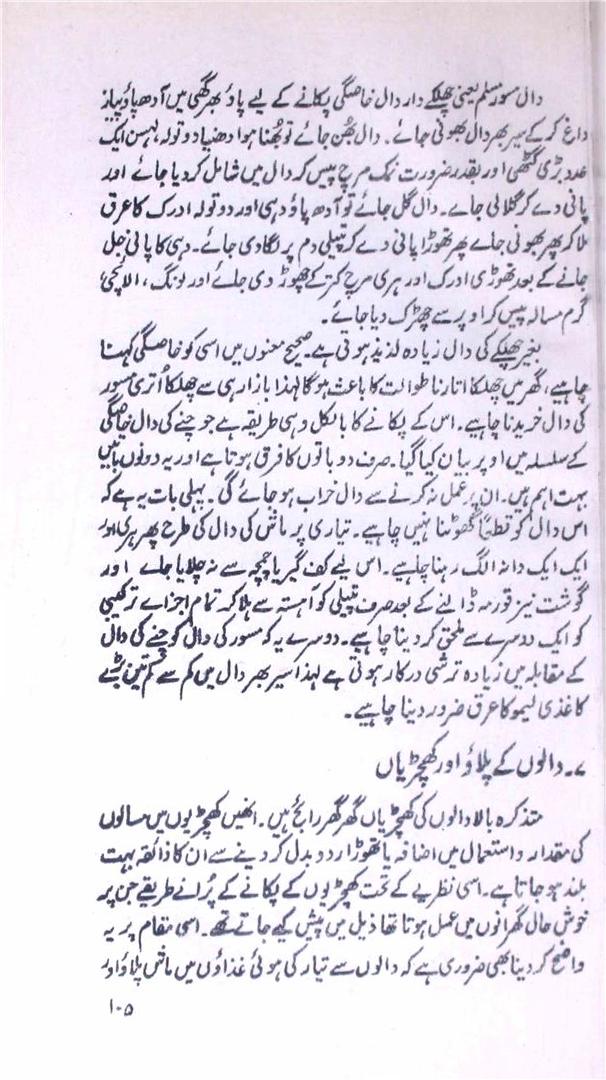 دال مسور مسلم یعنی چھلکے دار دال خاصگی پکانے کے لیے پاؤ بھر گھی میں آدھ پاؤ پیاز
داغ کر کے سیر بھر دال بھونی جائے۔ دال بھُن جائے تو بھُنا ہوا دھنیا دو تولہ، لہسن ایک
عدد بڑی گٹھی اور بقدر ضرورت نمک مرچ پیس کر دال میں شامل کر دیا جائے اور
پانی دے کر گلالی جائے۔ دال گل جائے تو آدھ پاؤ دہی اور دو تولہ ادرک کا عرق
ملا کر پھر بھونی جائے پھر تھوڑا پانی دے کر پتیلی دم پر لگا دی جائے۔ دہی کا پانی جل
جانے کے بعد تھوڑی ادرک اور ہری مرچ کتر کے چھوڑ دی جائے اور لونگ، الائچی،
گرم مسالہ پیس کر اوپر سے چھڑک دیا جائے۔
بغیر چھلکے کی دال زیادہ لذیذ ہوتی ہے۔ صحیح معنوں میں اسی کو خاصگی کہنا
چاہیے، گھر میں چھلکا اتارنا طوالت کا باعث ہوگا لہذا بازار ہی سے چھلکا اُتری مسور
کی دال خریدنا چاہیے۔ اس کے پکانے کا بالکل وہی طریقہ ہے جو چنے کی دال خاصگی
کے سلسلہ میں اوپر بیان کیا گیا۔ صرف دو باتوں کا فرق ہوتا ہے اور یہ دونوں باتیں
بہت اہم ہیں۔ ان پر عمل نہ کرنے سے دال خراب ہو جائے گی۔ پہلی بات یہ ہے کہ
اس دال کو قطعاً گھوٹنا نہیں چاہیے۔ تیاری پر ماش کی دال کی طرح پھرہری اور
ایک ایک دانہ الگ رہنا چاہیے۔ اس لیے کف گیر یا چمچہ سے نہ چلایا جائے اور
گوشت نیز قورمہ ڈالنے کے بعد صرف پتیلی کو آہستہ سے ہلا کر تمام اجزائے ترکیبی
کو ایک دوسرے سے ملحق کر دینا چاہیے۔ دوسرے یہ کہ مسور کی دال کو چنے کی دال
کے مقابلہ میں زیادہ ترشی درکار ہوتی ہے لہذا سیر بھر دال میں کم سے کم تین بڑے
کاغذی لیمو کا عرق ضرور دینا چاہیے۔
۷۔ دالوں کے پلاؤ اور کھچڑیاں
متذکرہ بالا دالوں کی کھچڑیاں گھر گھر رائج ہیں۔ انھیں کھچڑیوں میں مسالوں
کی مقدار و استعمال میں اضافہ یا تھوڑا ردوبدل کر دینے سے ان کا ذائقہ بہت
بلند ہو جاتا ہے۔ اسی نظریے کے تحت کھچڑیوں کے پکانے کے پُرانے طریقے جن پر
خوش حال گھرانوں میں عمل ہوتا تھا ذیل میں پیش کیے جاتے تھے۔ اسی مقام پر یہ
واضح کر دینا بھی ضروری ہے کہ دالوں سے تیار کی ہوئی غذاؤں میں ماش پلاؤ اور
۱۰۵